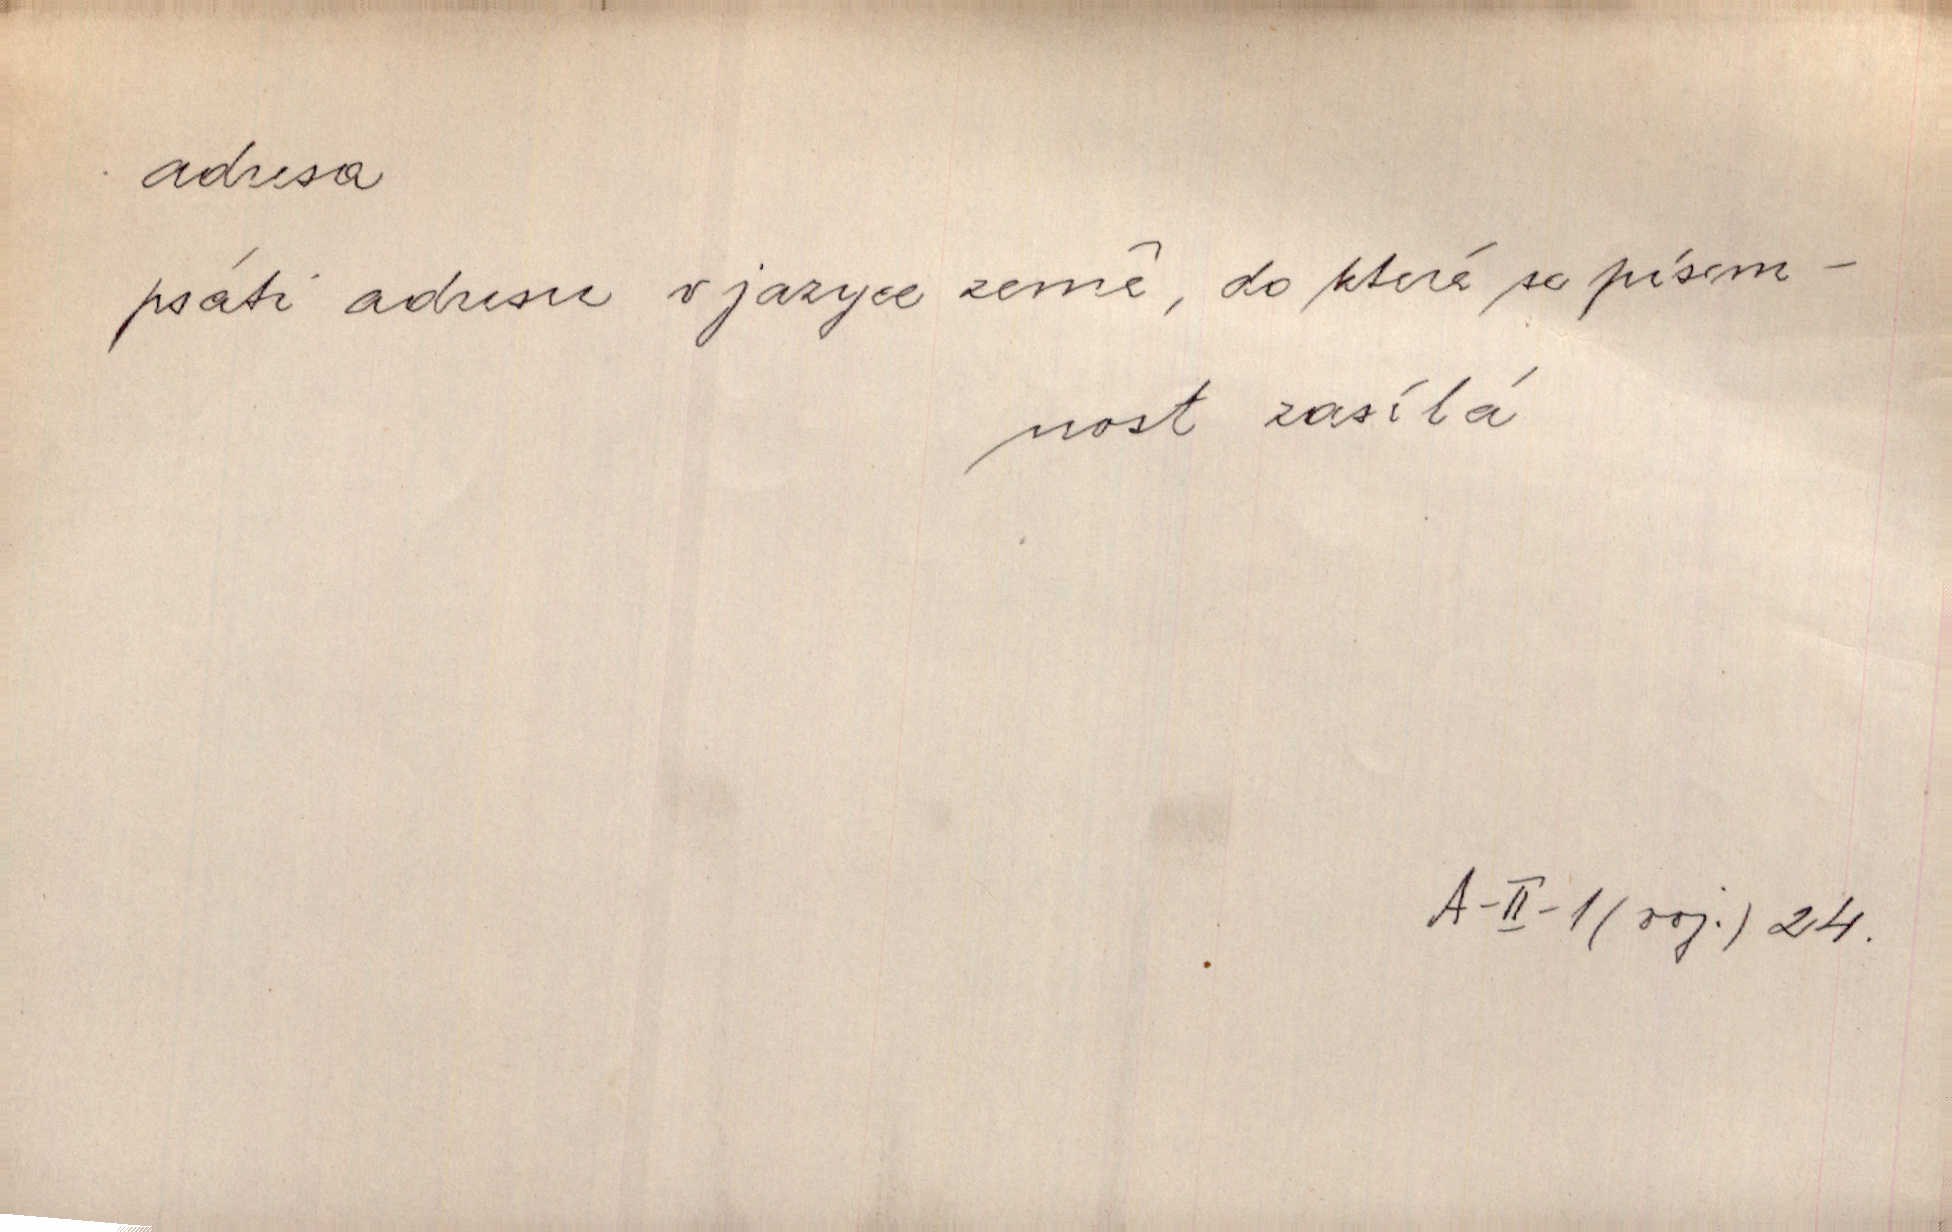 adresa
psáti adresu v jazyce země, do které se písem-
nost zasílá
A-II-1 (voj.) 24.